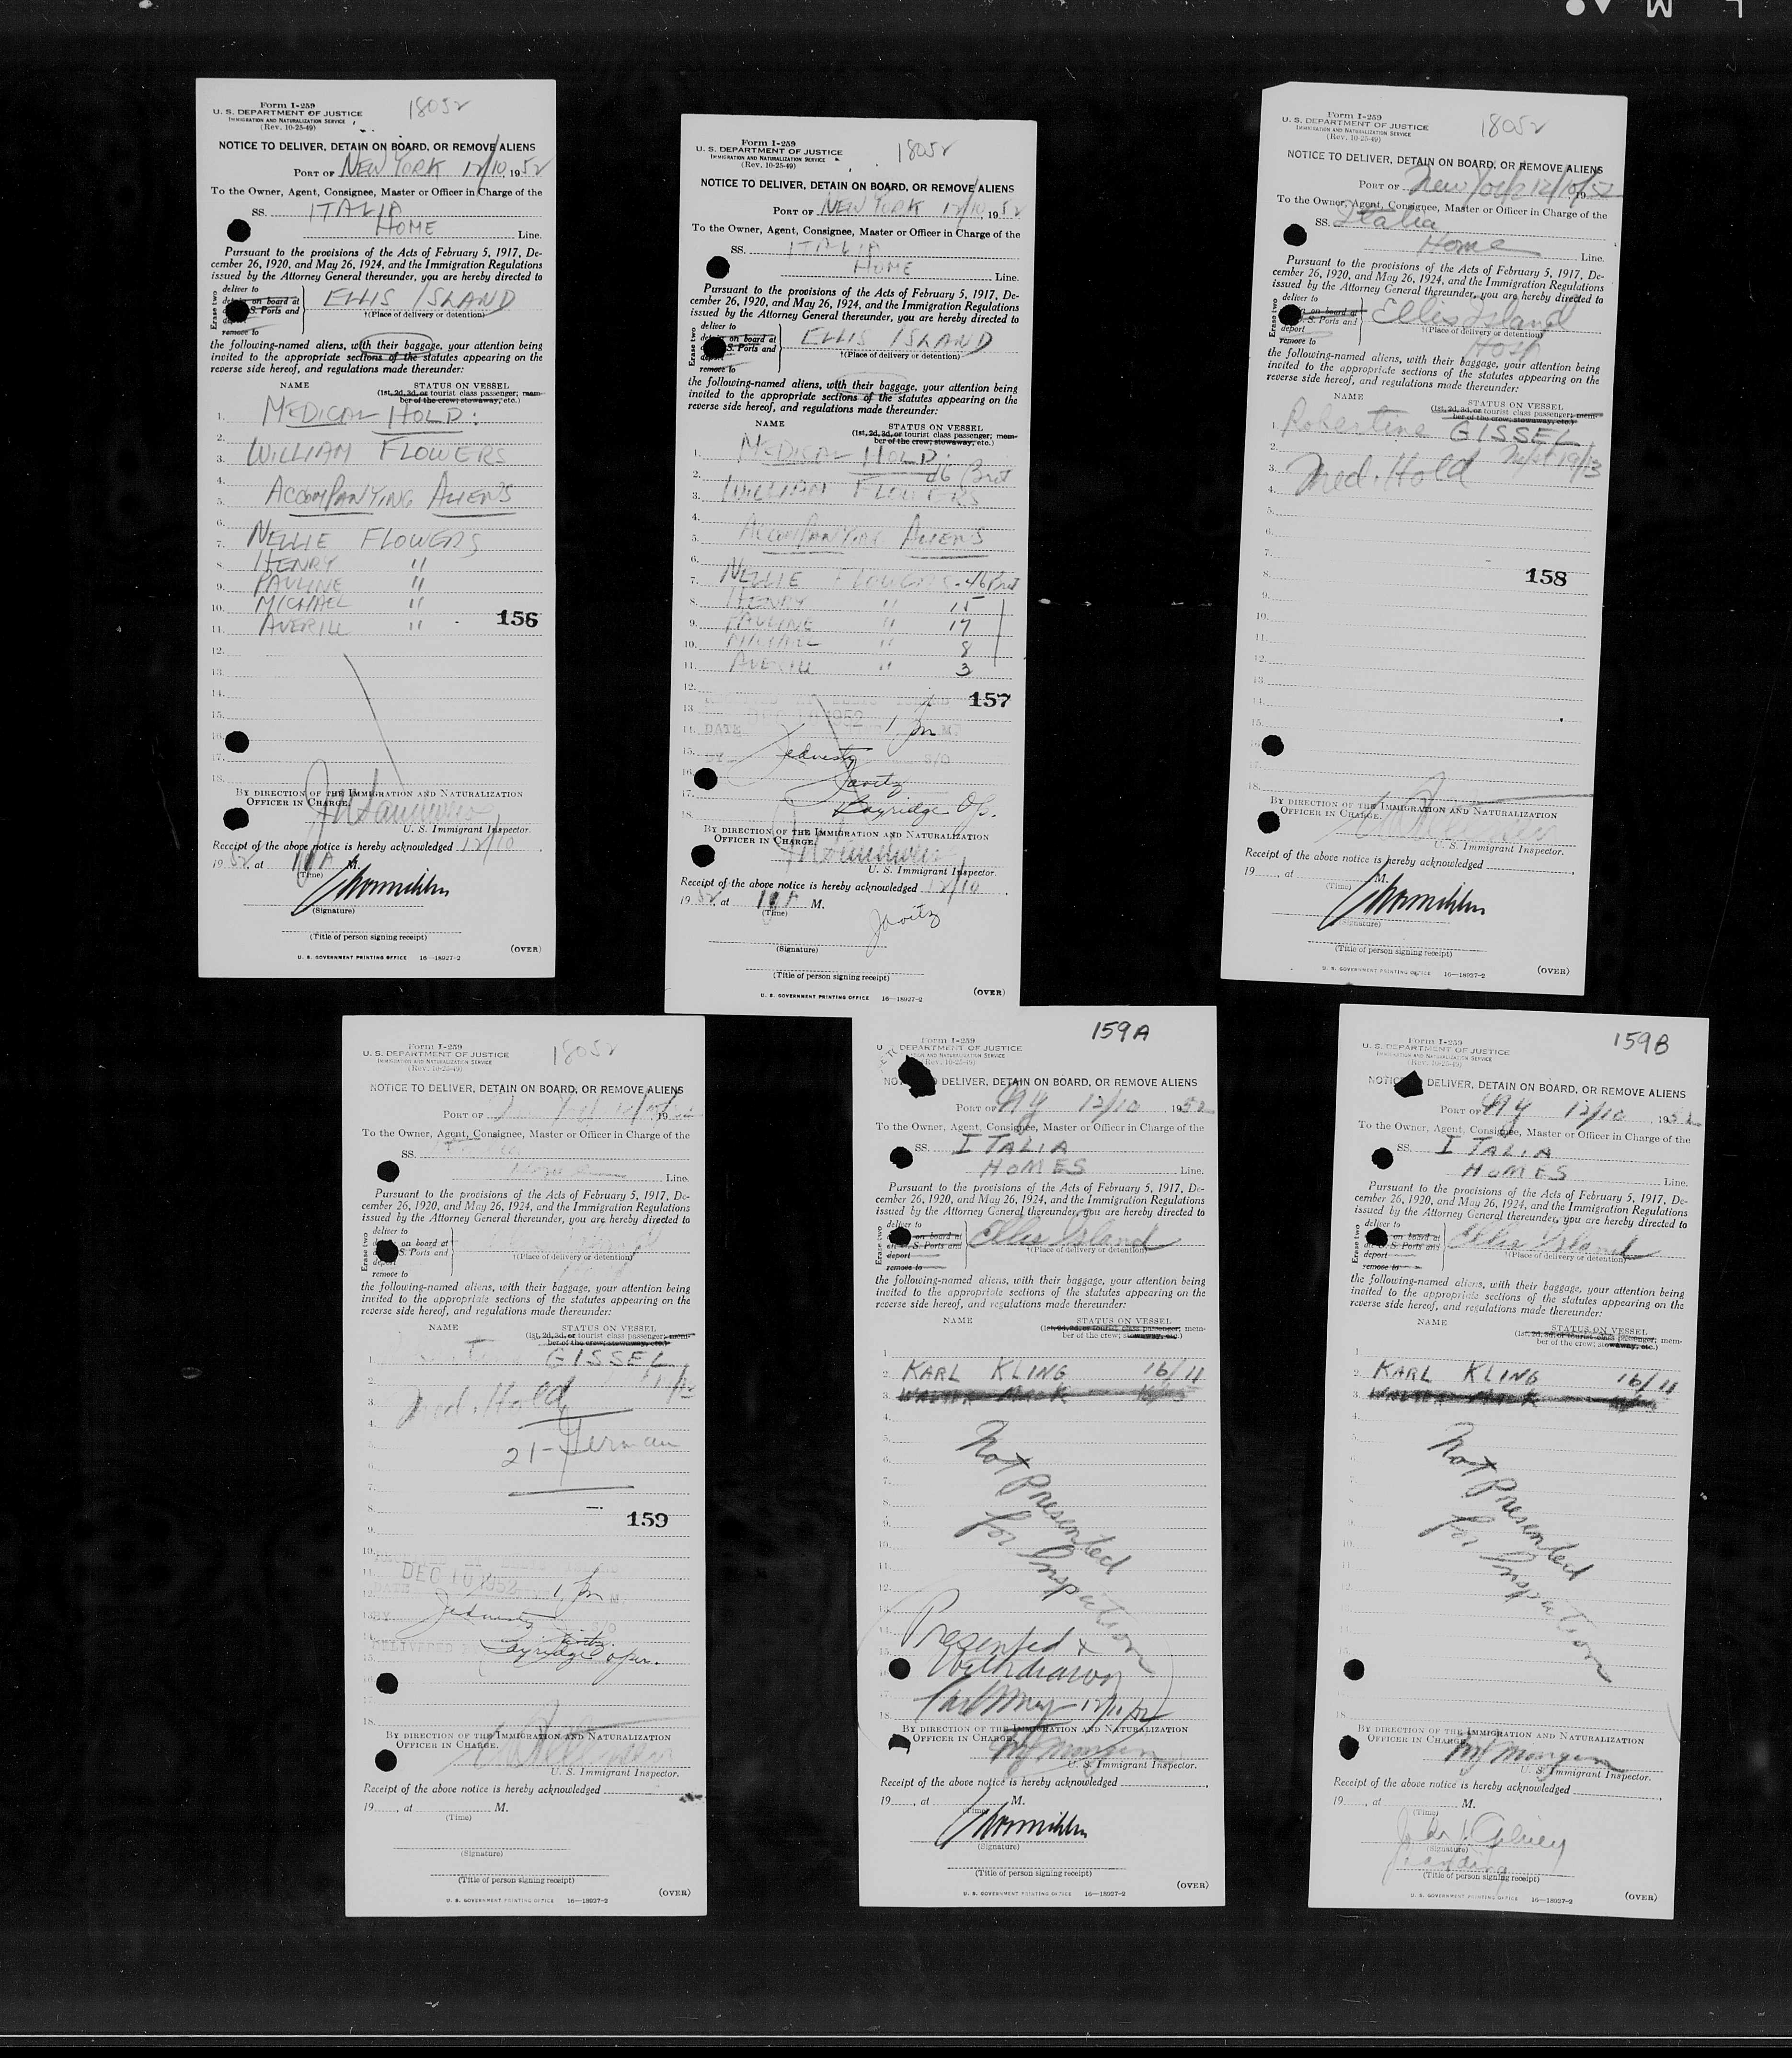 Form I-259
18052
U. S. DEPARTMENT OF JUSTICE
IMMIGRATION AND NATURALIZATION SERVICE
(Rev. 10-25-49)
NOTICE TO DELIVER, DETAIN ON BOARD, OR REMOVE ALIENS
PORT OF NEW YORK 12/10, 1952
To the Owner, Agent, Consignee, Master or Officer in Charge of the
SS. ITALIA
HOME Line.
Pursuant to the provisions of the Acts of February 5, 1917, De-
cember 26, 1920, and May 26, 1924, and the Immigration Regulations
issued by the Attorney General thereunder, you are hereby directed to
Erase two
deliver to
on board at
S. Ports and
remove to
ELLIS ISLAND
†(Place of delivery or detention)
the following-named aliens, with their baggage, your attention being
invited to the appropriate sections of the statutes appearing on the
reverse side hereof, and regulations made thereunder:
NAME STATUS ON VESSEL
(1st, 2d, 3d, or tourist class passenger; mem-
ber of the crew; stowaway, etc.)
1. MEDICAL HOLD:
2.
3. WILLIAM FLOWERS
4.
5. ACCOMPANYING ALIENS
6.
7. NELLIE FLOWERS
8. HENRY "
9. PAULINE "
10. MICHAEL "
156
11. AVERILL "
12.
13.
14.
15.
16.
17.
18.
BY DIRECTION OF THE IMMIGRATION AND NATURALIZATION
OFFICER IN CHARGE.
U. S. Immigrant Inspector.
Receipt of the above notice is hereby acknowledged 12/10
1952, at 11 A M.
(Time)
(Signature)
(Title of person signing receipt)
(OVER)
U. S. GOVERNMENT PRINTING OFFICE 16—18927-2
Form I-259
18052
U. S. DEPARTMENT OF JUSTICE
IMMIGRATION AND NATURALIZATION SERVICE
(Rev. 10-25-49)
NOTICE TO DELIVER, DETAIN ON BOARD, OR REMOVE ALIENS
PORT OF NEW YORK 12/10, 1952
To the Owner, Agent, Consignee, Master or Officer in Charge of the
SS. ITALIA
HOME Line.
Pursuant to the provisions of the Acts of February 5, 1917, De-
cember 26, 1920, and May 26, 1924, and the Immigration Regulations
issued by the Attorney General thereunder, you are hereby directed to
Erase two
deliver to
on board at
S. Ports and
deport
remove to
ELLIS ISLAND
†(Place of delivery or detention)
the following-named aliens, with their baggage, your attention being
invited to the appropriate sections of the statutes appearing on the
reverse side hereof, and regulations made thereunder:
NAME STATUS ON VESSEL
(1st, 2d, 3d, or tourist class passenger; mem-
ber of the crew; stowaway, etc.)
1. MEDICAL HOLD:
2. 46 Brit
3. WILLIAM FLOWERS
4.
5. ACCOMPANYING ALIENS
6.
7. NELLIE FLOWERS - 46 Brit
8. HENRY " 15
9. PAULINE " 17
10. MICHAEL " 8
11. AVERILL " 3
12.
157
13. DEC 10 1952
14. DATE 1 Pm
15.
16. Javitz
17. Bayridge Op.
18.
BY DIRECTION OF THE IMMIGRATION AND NATURALIZATION
OFFICER IN CHARGE.
U. S. Immigrant Inspector.
Receipt of the above notice is hereby acknowledged 12/10
1952, at 11 A M.
(Time)
Javitz
(Signature)
(Title of person signing receipt)
(OVER)
U. S. GOVERNMENT PRINTING OFFICE 16—18927-2
Form I-259
18052
U. S. DEPARTMENT OF JUSTICE
IMMIGRATION AND NATURALIZATION SERVICE
(Rev. 10-25-49)
NOTICE TO DELIVER, DETAIN ON BOARD, OR REMOVE ALIENS
PORT OF New York 12/10/52
To the Owner, Agent, Consignee, Master or Officer in Charge of the
SS. Italia
Home Line.
Pursuant to the provisions of the Acts of February 5, 1917, De-
cember 26, 1920, and May 26, 1924, and the Immigration Regulations
issued by the Attorney General thereunder, you are hereby directed to
Erase two
deliver to
on board at
S. Ports and
deport
remove to
Ellis Island
†(Place of delivery or detention)
Hosp
the following-named aliens, with their baggage, your attention being
invited to the appropriate sections of the statutes appearing on the
reverse side hereof, and regulations made thereunder:
NAME STATUS ON VESSEL
(1st, 2d, 3d, or tourist class passenger; mem-
ber of the crew; stowaway, etc.)
1. Robertine GISSEL
2. 19/13
3. Med. Hold
4.
5.
6.
7.
8. 158
9.
10.
11.
12.
13.
14.
15.
16.
17.
18.
BY DIRECTION OF THE IMMIGRATION AND NATURALIZATION
OFFICER IN CHARGE.
U. S. Immigrant Inspector.
Receipt of the above notice is hereby acknowledged
19 , at M.
(Time)
(Signature)
(Title of person signing receipt)
(OVER)
U. S. GOVERNMENT PRINTING OFFICE 16—18927-2
Form I-259
18052
U. S. DEPARTMENT OF JUSTICE
IMMIGRATION AND NATURALIZATION SERVICE
(Rev. 10-25-49)
NOTICE TO DELIVER, DETAIN ON BOARD, OR REMOVE ALIENS
PORT OF
To the Owner, Agent, Consignee, Master or Officer in Charge of the
SS.
Line.
Pursuant to the provisions of the Acts of February 5, 1917, De-
cember 26, 1920, and May 26, 1924, and the Immigration Regulations
issued by the Attorney General thereunder, you are hereby directed to
Erase two
deliver to
on board at
S. Ports and
deport
remove to
†(Place of delivery or detention)
the following-named aliens, with their baggage, your attention being
invited to the appropriate sections of the statutes appearing on the
reverse side hereof, and regulations made thereunder:
NAME STATUS ON VESSEL
(1st, 2d, 3d, or tourist class passenger; mem-
ber of the crew; stowaway, etc.)
1. GISSEL
2.
3. Med. Hold
4.
5. 21-German
6.
7.
8.
159
9.
10.
11. DEC 10 1952 1 Pm
12. DATE
13.
14. Javitz
15. Bayridge Oper.
17.
18.
BY DIRECTION OF THE IMMIGRATION AND NATURALIZATION
OFFICER IN CHARGE.
U. S. Immigrant Inspector.
Receipt of the above notice is hereby acknowledged
19 , at M.
(Time)
(Signature)
(Title of person signing receipt)
(OVER)
U. S. GOVERNMENT PRINTING OFFICE 16—18927-2
159A
Form I-259
U. S. DEPARTMENT OF JUSTICE
IMMIGRATION AND NATURALIZATION SERVICE
(Rev. 10-25-49)
DELIVER, DETAIN ON BOARD, OR REMOVE ALIENS
PORT OF NY 12/10 1952
To the Owner, Agent, Consignee, Master or Officer in Charge of the
SS. ITALIA
HOMES Line.
Pursuant to the provisions of the Acts of February 5, 1917, De-
cember 26, 1920, and May 26, 1924, and the Immigration Regulations
issued by the Attorney General thereunder, you are hereby directed to
Erase two
deliver to
on board at
S. Ports and
deport
remove to
Ellis Island
†(Place of delivery or detention)
the following-named aliens, with their baggage, your attention being
invited to the appropriate sections of the statutes appearing on the
reverse side hereof, and regulations made thereunder:
NAME STATUS ON VESSEL
(1st, 2d, 3d, or tourist class passenger; mem-
ber of the crew; stowaway, etc.)
1.
2. KARL KLING 16/11
3. MACK
4.
5.
6.
7.
8.
9.
10.
11.
12.
Not Presented
for Inspection
Presented &
Withdrawn
12/11/52
18.
BY DIRECTION OF THE IMMIGRATION AND NATURALIZATION
OFFICER IN CHARGE.
U. S. Immigrant Inspector.
Receipt of the above notice is hereby acknowledged
19 , at M.
(Time)
(Signature)
(Title of person signing receipt)
(OVER)
U. S. GOVERNMENT PRINTING OFFICE 16—18927-2
159B
Form I-259
U. S. DEPARTMENT OF JUSTICE
IMMIGRATION AND NATURALIZATION SERVICE
(Rev. 10-25-49)
DELIVER, DETAIN ON BOARD, OR REMOVE ALIENS
PORT OF NY 12/10, 1952
To the Owner, Agent, Consignee, Master or Officer in Charge of the
SS. ITALIA
HOMES Line.
Pursuant to the provisions of the Acts of February 5, 1917, De-
cember 26, 1920, and May 26, 1924, and the Immigration Regulations
issued by the Attorney General thereunder, you are hereby directed to
Erase two
deliver to
on board at
S. Ports and
deport
remove to
Ellis Island
(Place of delivery or detention)
the following-named aliens, with their baggage, your attention being
invited to the appropriate sections of the statutes appearing on the
reverse side hereof, and regulations made thereunder:
NAME STATUS ON VESSEL
(1st, 2d, 3d, or tourist class passenger; mem-
ber of the crew; stowaway, etc.)
1.
2. KARL KLING 16/11
3. MACK
4.
Not Presented
for Inspection
18.
BY DIRECTION OF THE IMMIGRATION AND NATURALIZATION
OFFICER IN CHARGE.
U. S. Immigrant Inspector.
Receipt of the above notice is hereby acknowledged
19 , at M.
(Time)
(Signature)
(Title of person signing receipt)
(OVER)
U. S. GOVERNMENT PRINTING OFFICE 16—18927-2